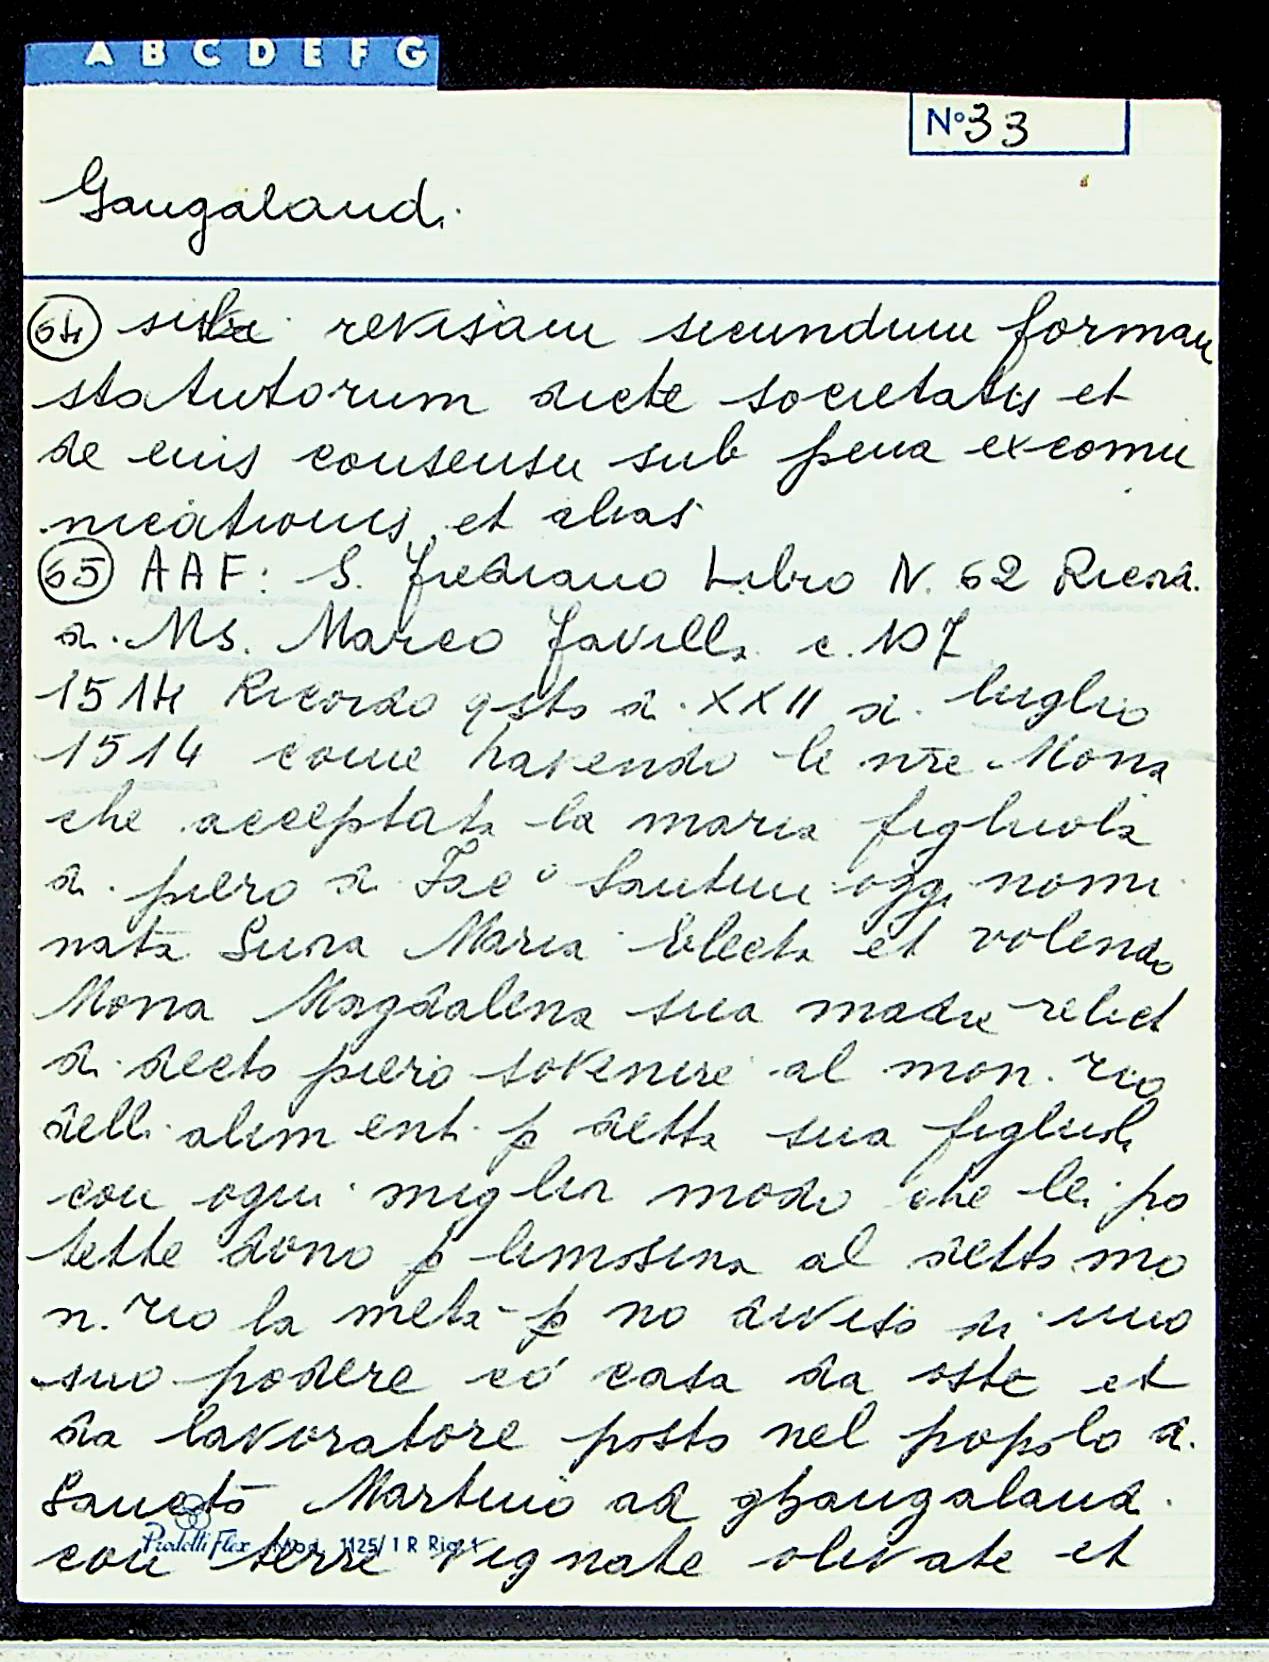 A B C D E F G
N° 33
Gangalandi
64 revisam secundum formam
statutorum dicte societatis et
de eius consensu sub pena excomu
nicationis et alias
65 AAF: S. Frediano Libro N. 62 Ricord.
di Ms. Marco Favilla c. 107
1514 Ricordo qsto di XXII di luglio
1514 come havendo le nre Mona
che acceptata la maria figliuola
di piero di Iac° Santini oggi nomi
nata Suora Maria Electa et volendo
Mona Magdalena sua madre relict
di decto piero sovenire al mon.rio
delli alimenti p detta sua figliuola
con ogni miglior modo che lei po
tette dono p limosina al detto mo
n.rio la meta p no diviso di uno
suo podere co casa da oste et
da lavoratore posto nel popolo di
Sancto Martino ad ghangalandi
Pradelli Flex Mod. 1125/1 R Rig. 1
con terre vignate olivate et